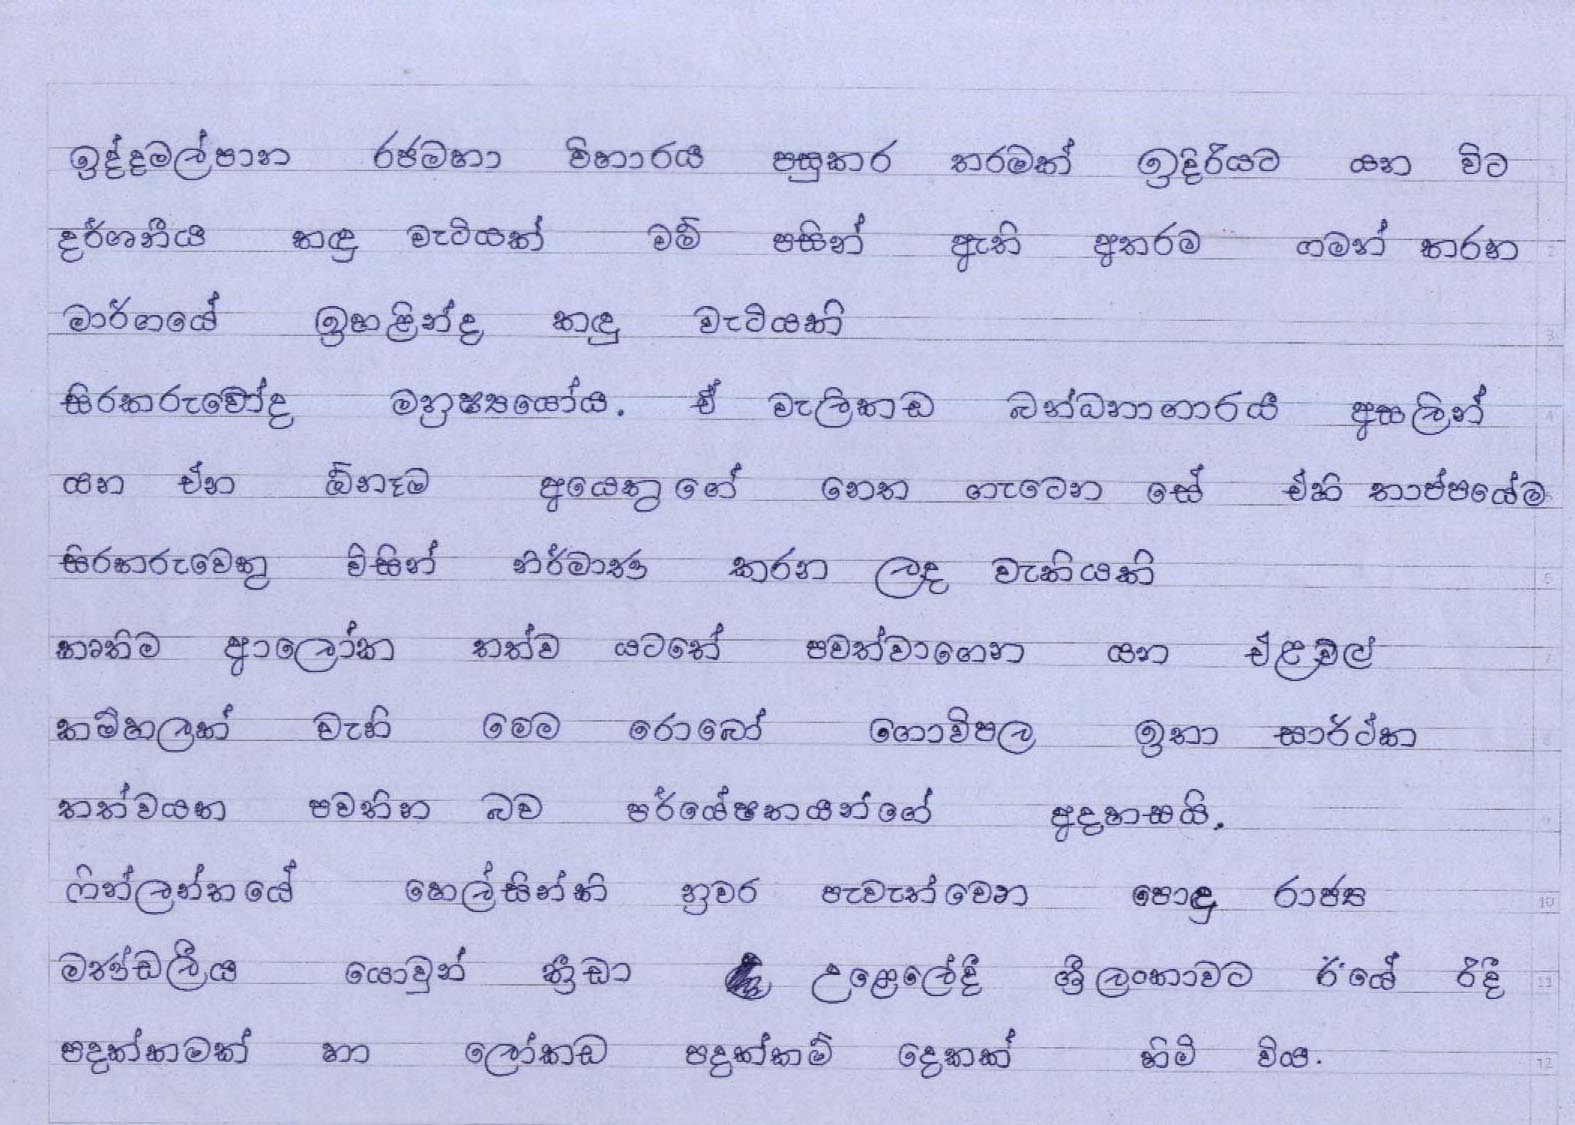 ඉද්දමල්පාන රජමහා විහාරය පසුකර තරමක් ඉදිරියට යන විට
දර්ශනීය කඳු වැටියක් මම් පසින් ඇති අතරම ගමන් කරන
මාර්ගයේ ඉහළින්ද කඳු වැටියකි
සිරකරුවෝද මනුෂ්‍යයෝය. ඒ වැලිකඩ බන්ධනාගාරයී අසලින්
යන එන ඕනෑම අයෙකුගේ නෙත ගැටෙන සේ එහි තාප්පයේම
සිරකරුවෙකු විසින් නිර්මාණ කරන ලද වැකියකි
කෘතිම ආලෝක තත්ව යටතේ පවත්වාගෙන යන එළවල්
කම්හලක් වැනි මෙම රොබෝ ගොවිපල ඉතා සාර්ථක
තත්වයක පවතින බව පර්යේෂකයන්ගේ අදහසයි.
ෆින්ලන්තයේ හෙල්සින්කි නුවර පැවැත්වෙන පොඳු රාජ්‍ය
මණ්ඩලීය යොවුන් ක්‍රීඩා උළෙලේදී ශ්‍රී ලංකාවට ඊයේ රිදී
පදක්කමක් හා ලෝකඩ පදක්කම් දෙකක් හිමි විය.